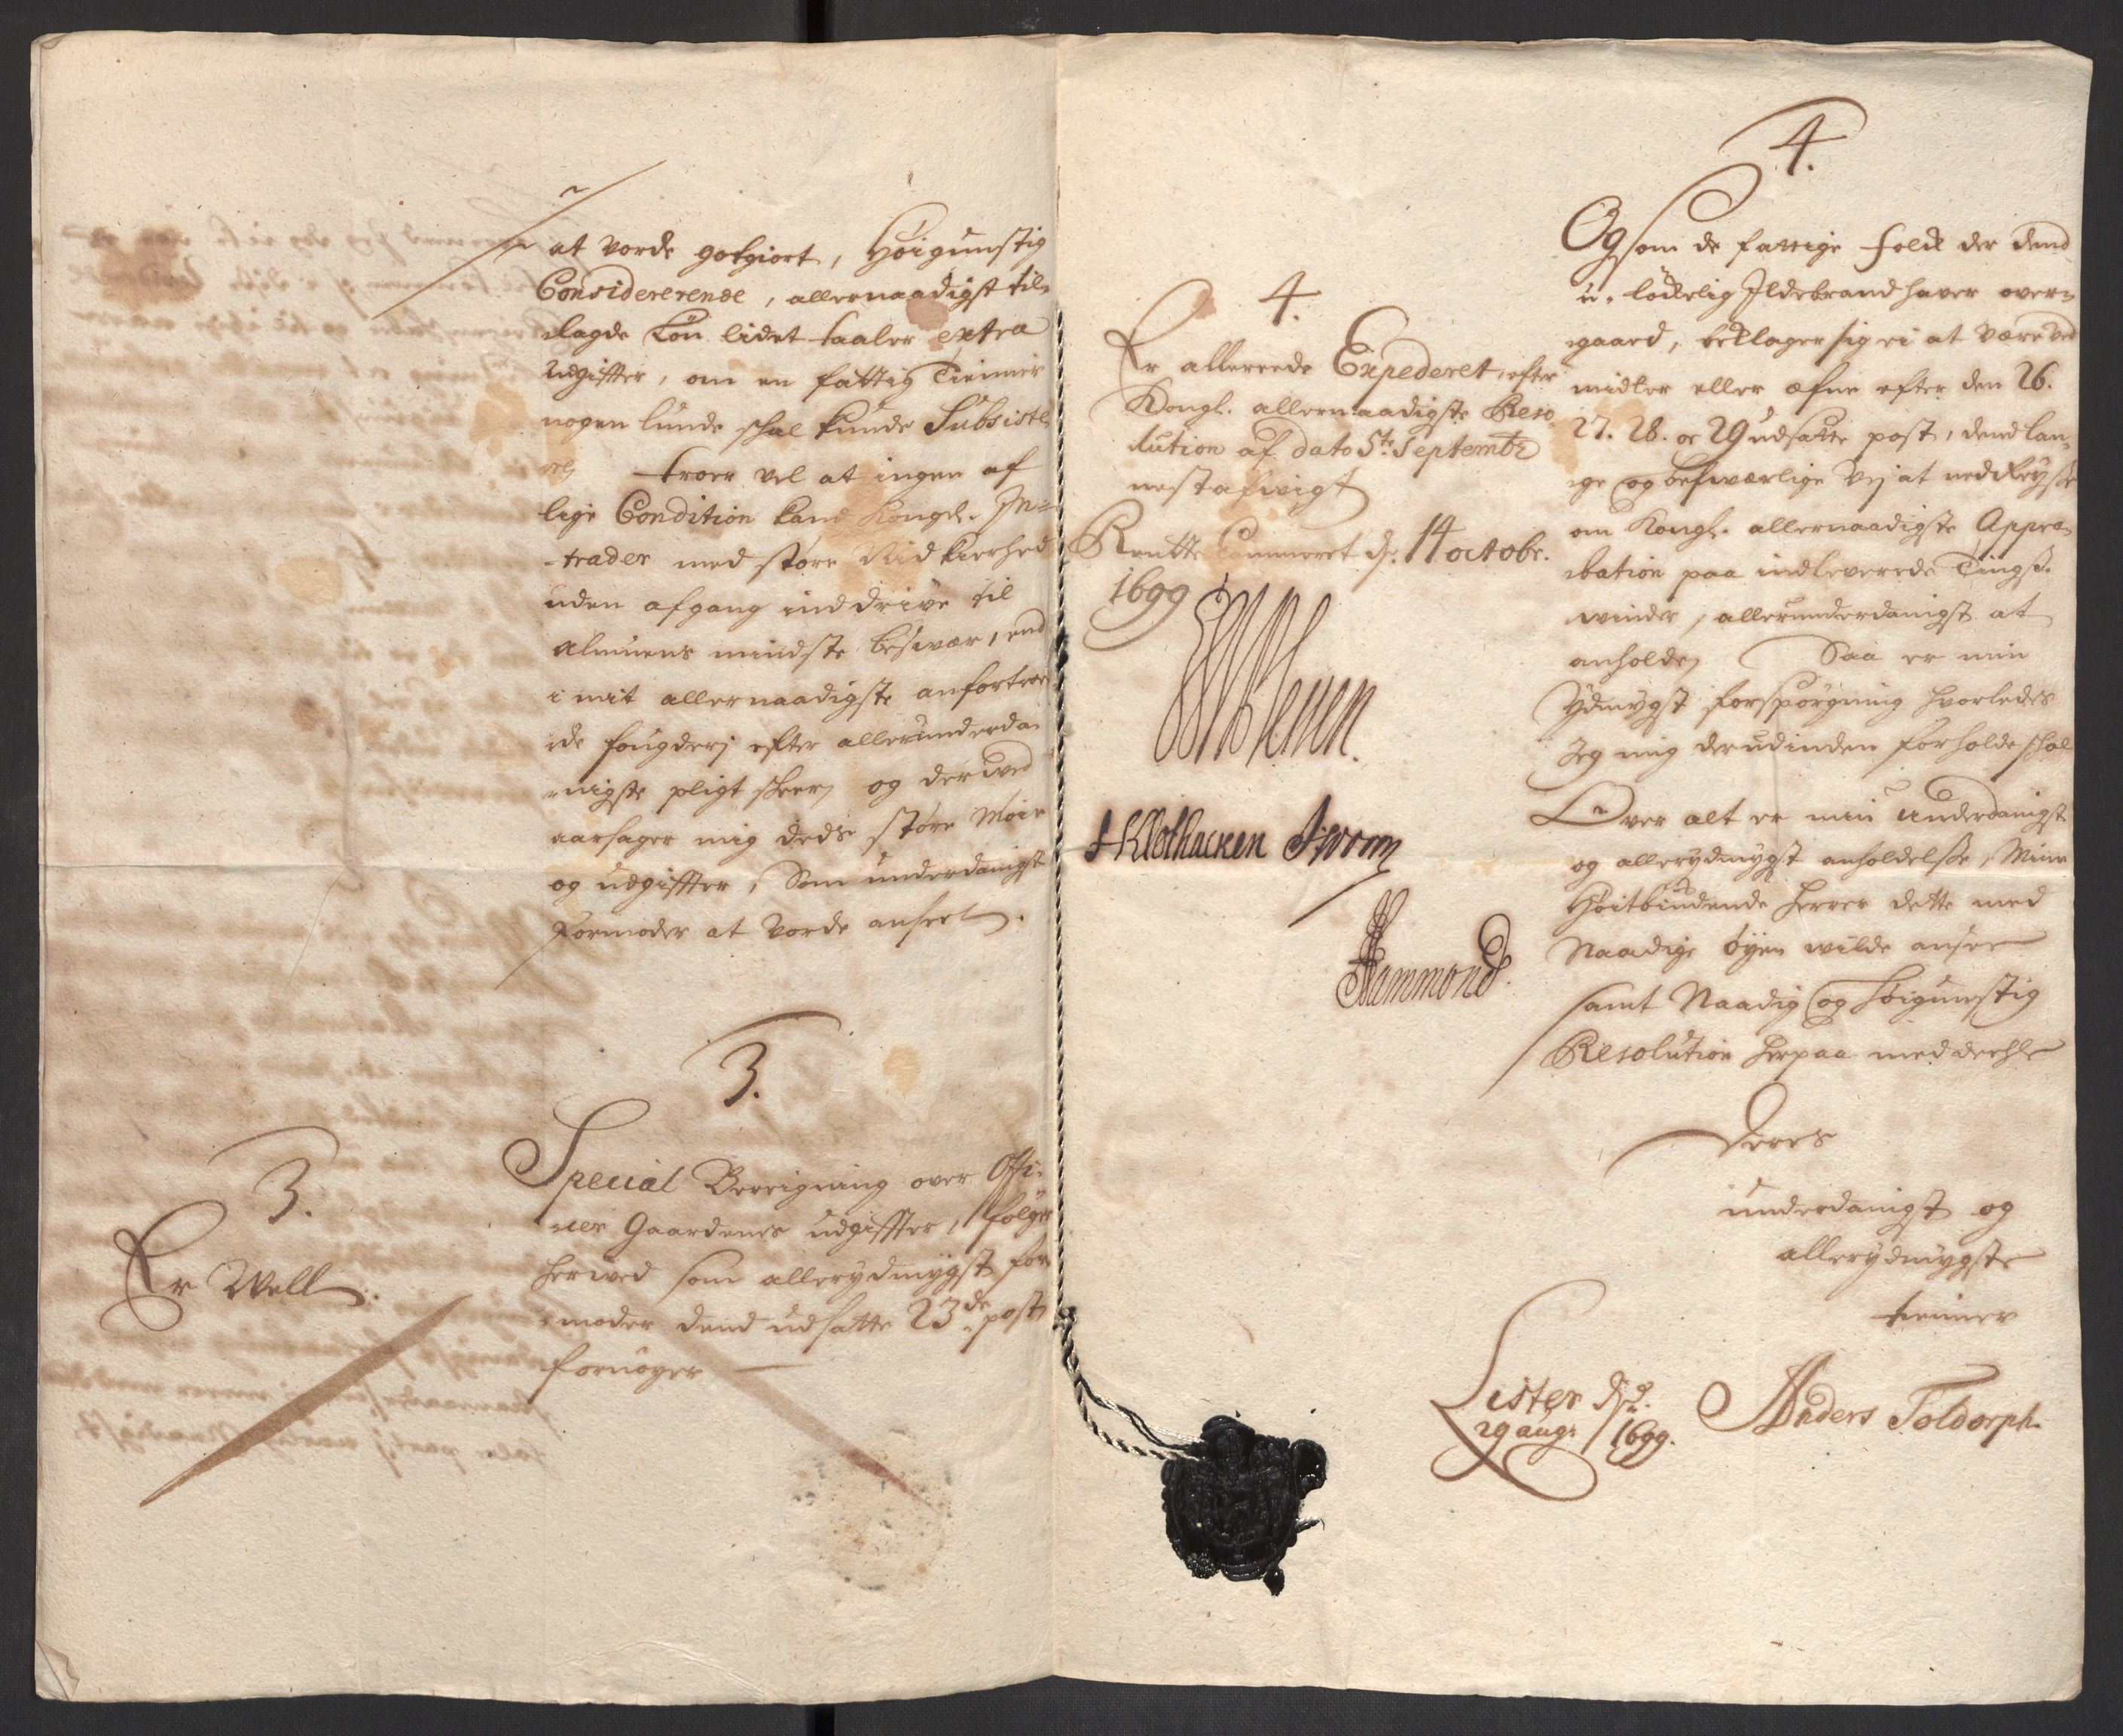 at vorde gotgiort, Høigunstig
Considererende, allernaadigst til„
lagde Løn lidet taaler extra
udgiffter, om en fattig Tienner
nogenlunde skal kunde Subsiste„
troer vel at ingen af
lige Condition kand Kongl. In„
trader med større
uden afgang inddrive til
Almuens mindste besvær, end
i mit allernaadigste anfortroe„
de fougderj efter allerunderda„
nigste pligt skeer, og derved
aarsager mig dends større Møie
og udgiffter, Som underdanigst
formoder at vorde anseet.
3.
Special Bereigning over Offi„
cer Gaardenes udgiffter, følger
herved som allerydmygst for„
moder dend udsatte 23de post
fornøyer
3.
Er Well.
4.
Er allerede Expederet, efter
Kongl. allernaadigste Reso„
lution af dato 5te Septembr
nestafvigt
Rentte Cammeret d. 14 octobr.
1699
4.
Og som de fattige folk der dend
u-løckelig Ildebrand haver over„
gaard, beklager sig ei at være ved
midler eller æfne efter den 26.
27. 28. oc 29 udsatte post, dend lan„
ge og besværlige Vej at nedreyse
om Kongl. allernaadigste Appro„
bation paa indleverede Tingß„
vinder, allerunderdanigst at
anholde, Saa er min
Ydmygst forspørgning hvorledes
Jeg mig derudinden forholde skal
Over alt er min underdanigst
og allerydmygst anholdelse, Mine
Høitbiudende herrer dette med
Naadige øyen wilde ansee
samt Naadig og høigunstig
Resolution herpaa meddeele
Deres
underdanigst og
allerydmygste
tienner
Lister d.
29 aug: 1699.
Anders Toldorph.
Hammond.